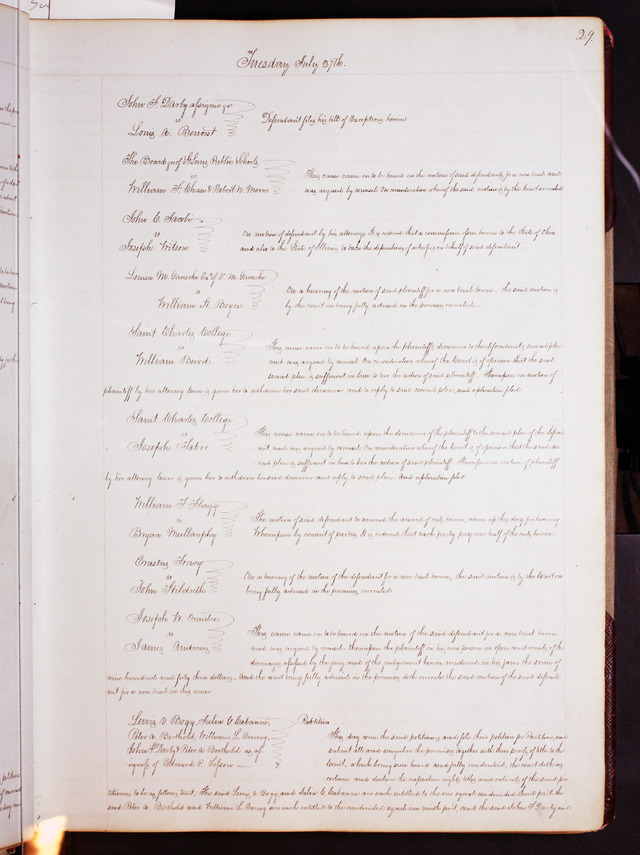 29.
Tuesday July 27th.
John F. Darby assignee
vs
Louis A. Benoist
Defendant files his bill of Exceptions herein
The Board &c of St Louis Public Schools
vs
William F. Chase & Robert W. Moore
This cause came on to be heard on the motion of said defendants for a new trial and
was argued by counsel On consideration whereof the said motion is by the court overruled
John C. Jacobi
vs
Joseph Wilson
On motion of defendant by his attorney It is ordered that a commission issue herein to the State of Ohio
and also to the State of to take the depositions of witnesses on behalf of said defendant
Louisa M.
vs
William H. Boyce
On a hearing of the motion of said plaintiff for a new trial herein the said motion is
by the court on being fully advised in the premises overruled.
Saint Charles College
vs
William Burd
This cause came on to be heard upon the plaintiffs demurrer to the defendants second plea
and was argued by counsel On consideration whereof the Court is of opinion that the said
second plea is sufficient in law to bar the action of said plaintiff. Thereupon on motion of
plaintiff by her attorney leave is given her to withdraw her said demurrer and to reply to said second plea and replication filed
Saint Charles College
vs
Joseph Tabor
This cause came on to be heard upon the demurrer of the plaintiff to the second plea of the defend
ant and was argued by counsel On consideration whereof the Court is of opinion that the said
plea is sufficient in law to bar the action of said plaintiff. Thereupon on motion of plaintiff
by her attorney leave is given her to withdraw her said demurrer and reply to said plea. and replication filed
William F.
vs
Bryan Mullanphy
The motion of said defendant to amend the award of costs herein, came up this day for hearing
Whereupon by consent of parties It is ordered that each party pay one half of the costs herein.
Erastus Tracy
vs
John Hildreth
On a hearing of the motion of the defendant for a new trial herein, the said motion is by the Court on
being fully advised in the premises, overruled
Joseph W.
vs
James Andrews
This cause came on to be heard on the motion of the said defendant for a new trial herein
and was argued by counsel. thereupon the plaintiff in his own person in open court remits of the
damages assessed by the jury and of the judgement herein rendered in his favor the sum of
nine hundred and forty three dollars. And the court being fully advised in the premises doth overrule the said motion of the said defend
ant for a new trial in this cause
Lewis V. Bogy, Julia C. Cabanne,
Peter A. Berthold, William L.
John F. Darby & Peter A. Berthold as
signees of Edward P.
Partition
This day came the said petitioners and filed their petition for Partition, and
submit all and singular the premises together with their proofs of title to the
Court. which being seen heard and fully understood, the court doth as
certain and declare the respective rights, titles and interests of the said pe
titioners to be as follows towit, The said Lewis V. Bogy and Julia C. Cabanne are each entitled to the one equal undivided third part, the
said Peter A. Berthold and William L. are each entitled to the undivided equal one ninth part, and the said John F. Darby and